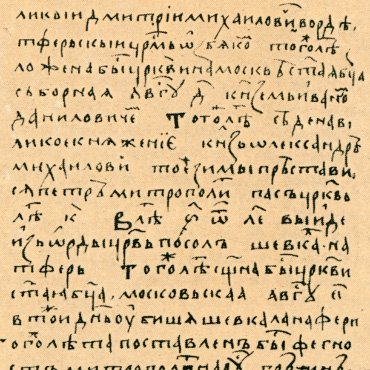 ликыи дмитрїи михаиловї въ ордѣ,
тферьскыи црмъ ѡзбякѡ то гоⷧ лѣⷮ
ложена быⷭ црквї на москвѣ ст҃аа бц҃а
съборнаа авгⷭу д҃ кнѕемь иванѡ
даниловичеⷨ Того лѣⷮ сѣде на ві
ликое княженїе кнѕь ѡлександръ
михаилови тоѐ зимы прⷣстави
ся петръ митрополи пасъ црквь
лѣⷮ к҃ Влѣⷮ ѿ лѣ выиде
изъ ѡрды црвъ посолъ шевкаⷧ на
тферь Того лѣⷮ сщ҃на быⷭ црквї
ст҃аа бц҃а, московьская авгⷭу
в тои дн҃ь ѹбиша шевкала на ферⷬ
того лѣⷮ поставленъ быⷭ феѡгно